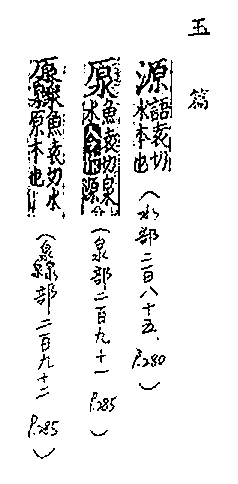 玉篇
源語袁切水本也(水部二百八十五、P.280)
厵魚袁切泉水今作源(泉部二百九十一 P.285)
厵魚袁切水泉原本也(灥部二百九十二 P.285)